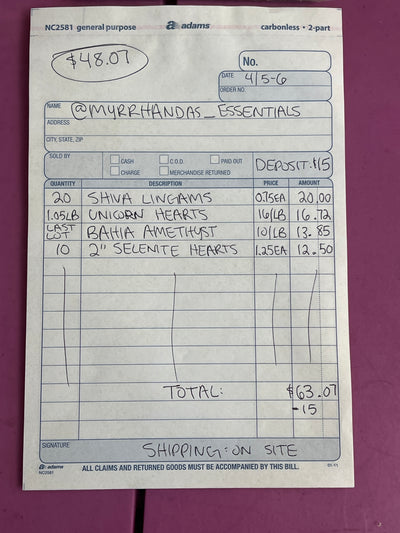 NC2581 general purpose adams carbonless • 2-part
$48.07
No.
DATE 4/5-6
ORDER NO.
NAME @MYRRHANDAS_ESSENTIALS
ADDRESS
CITY, STATE, ZIP
SOLD BY CASH C.O.D. PAID OUT DEPOSIT: $15
CHARGE MERCHANDISE RETURNED
QUANTITY DESCRIPTION PRICE AMOUNT
20 SHIVA LINGAMS 0.75EA 20.00
1.05LB UNICORN HEARTS 16/LB 16.72
LAST LOT BAHIA AMETHYST 10/LB 13.85
10 2" SELENITE HEARTS 1.25EA 12.50
TOTAL: $63.07
-15
SIGNATURE SHIPPING: ON SITE
adams NC2581 ALL CLAIMS AND RETURNED GOODS MUST BE ACCOMPANIED BY THIS BILL.